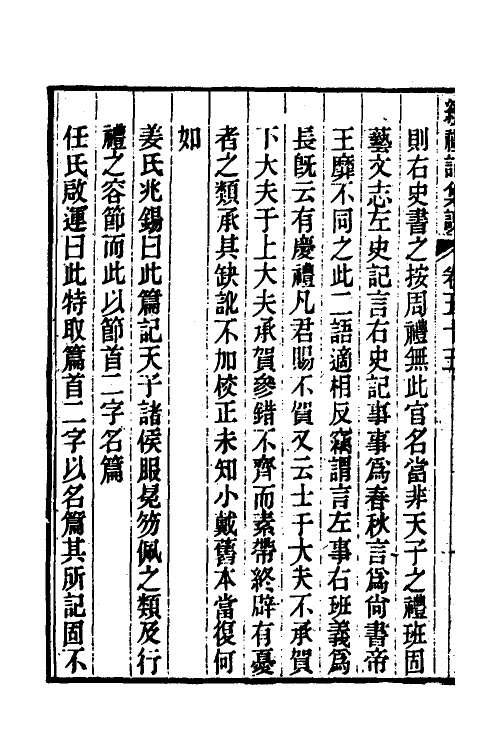 續禮記集說 卷五十五
則右史書之按周禮無此官名當非天子之禮班固
藝文志左史記言右史記事事為春秋言為尙書帝
王靡不同之此二語適相反竊謂言左事右班義為
長旣云有慶禮凡君賜不賀又云士于大夫不承賀
下大夫于上大夫承賀參錯不齊而素帶終辟有憂
者之類承其缺訛不加校正未知小戴舊本當復何
如
姜氏兆錫曰此篇記天子諸侯服冕笏佩之類及行
禮之容節而此以節首二字名篇
任氏啟運曰此特取篇首二字以名篇其所記固不